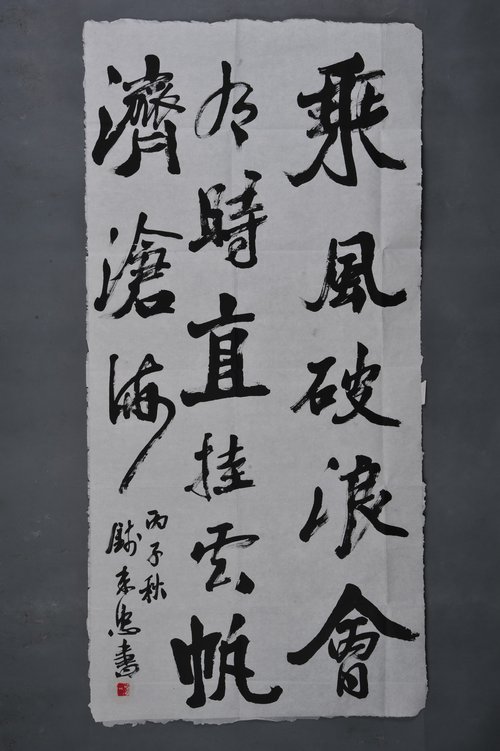 乘風破浪會
有時直挂云帆
濟滄海
丙子秋
錢来忠書